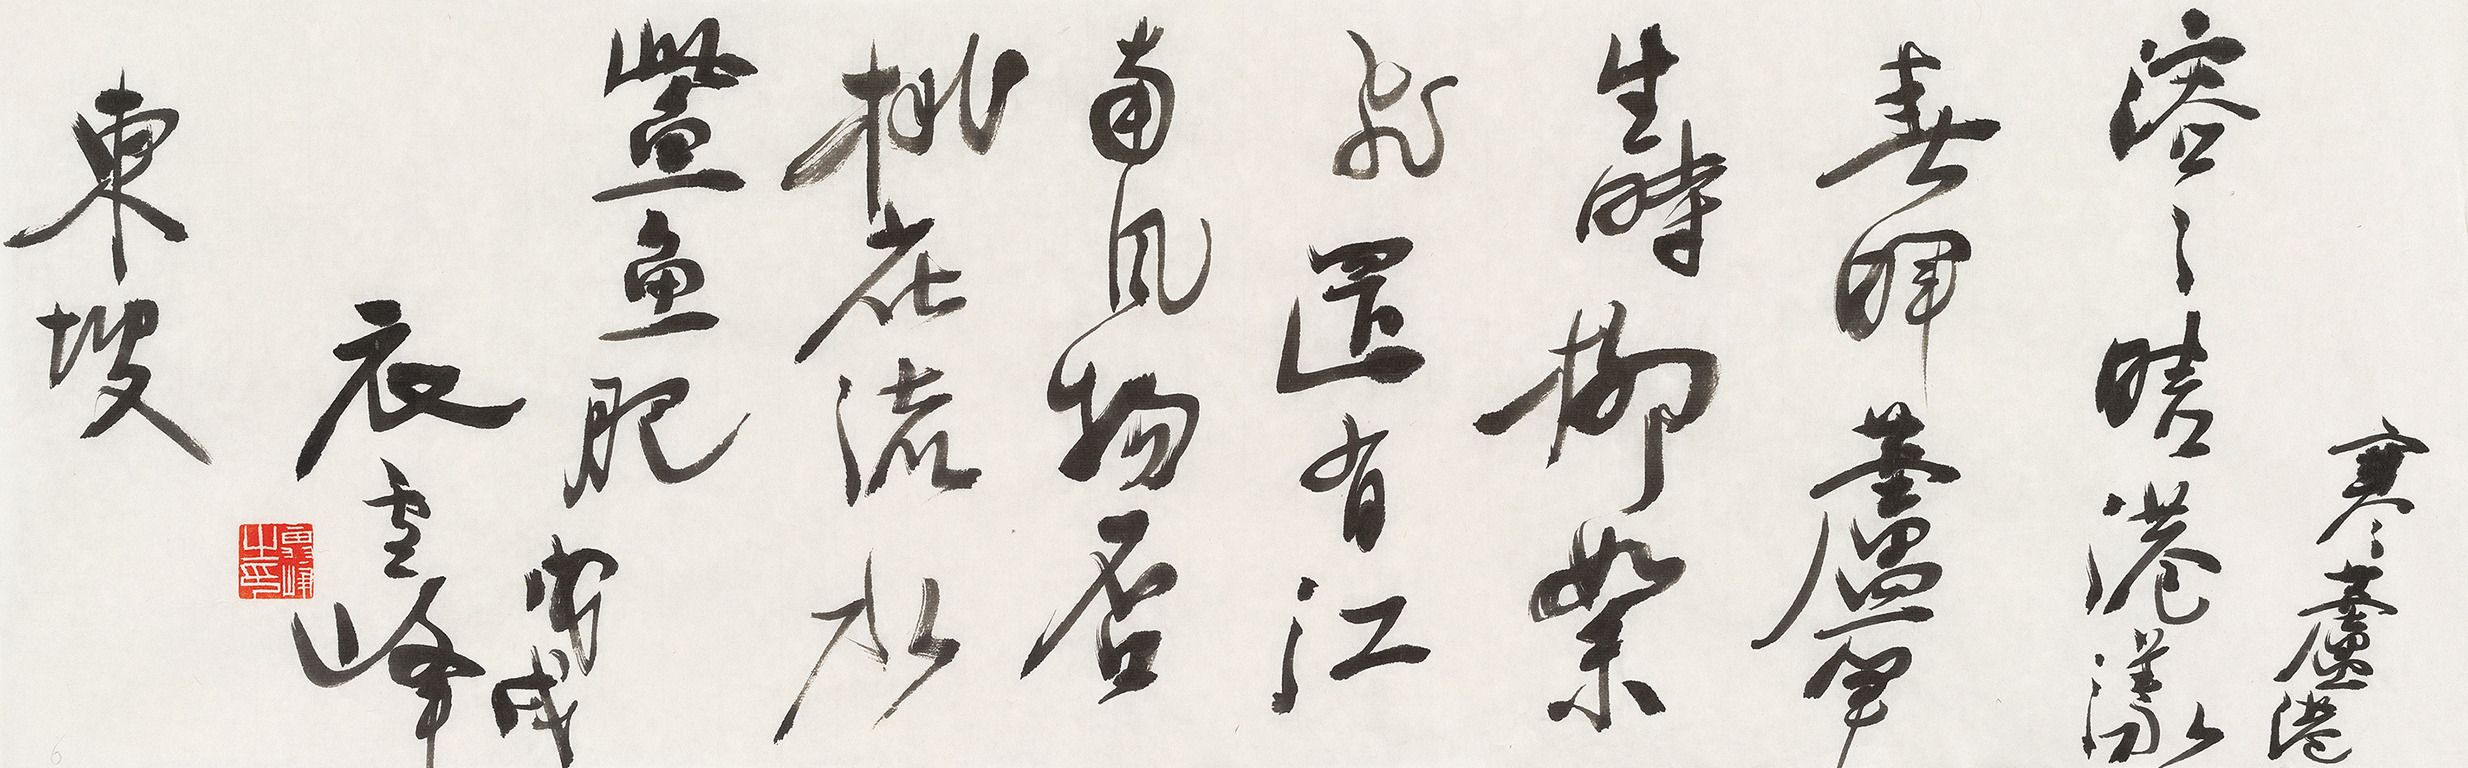 寒蘆港
溶〻晴港漾
春暉蘆筍
生時柳絮
飛還有江
南風物否
桃花流水
鮆魚肥
戌
衣雪峰
東坡
雪峰之印